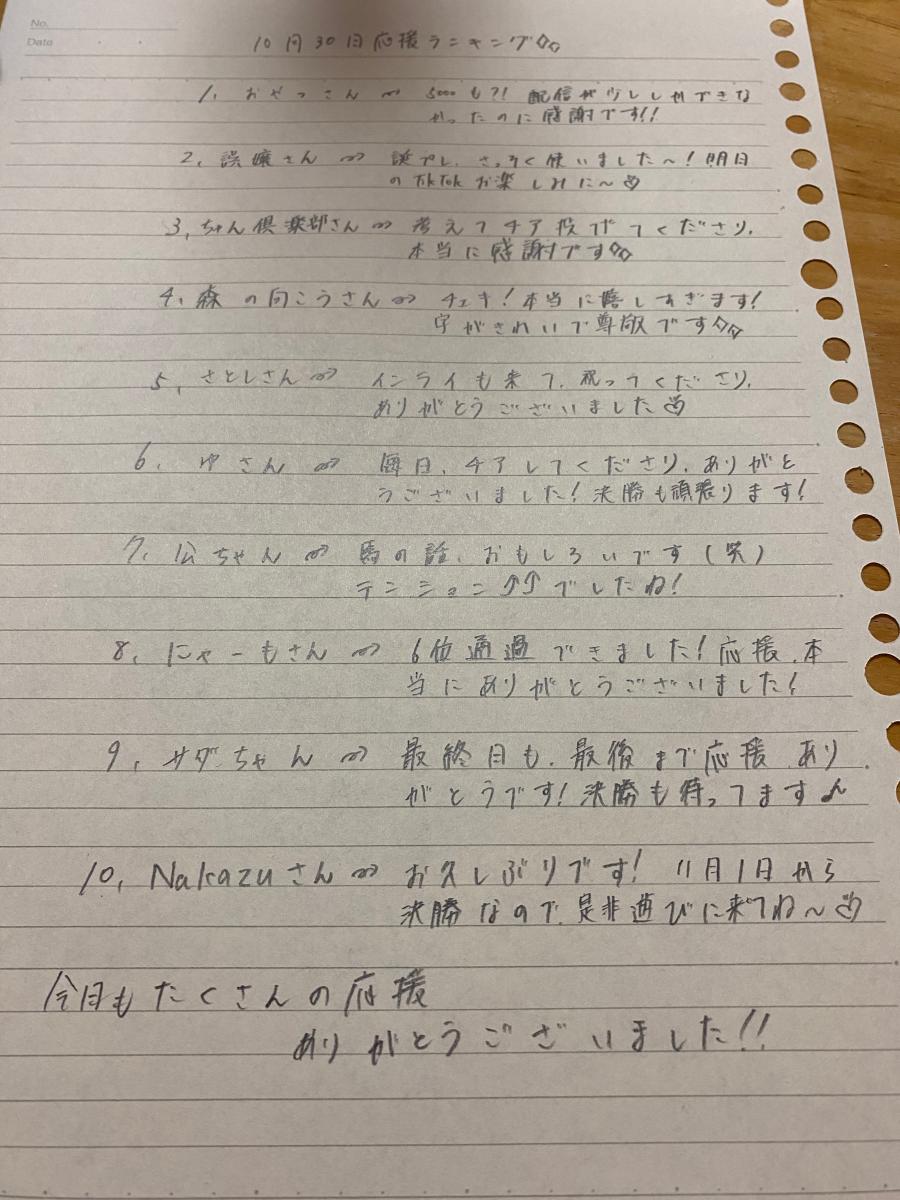 No.
Date
10月30日応援ランキング◇◇
1, おやっさん ⇒ 5000も?! 配信が少ししかできな
かったのに感謝です!!
2, 誤嬢さん ⇒ 誕プレ、さっそく使いました〜! 明日
のTikTokお楽しみに〜♡
3, ちゃん倶楽部さん ⇒ 考えてチア投げてくださり、
本当に感謝です◇◇
4, 森の向こうさん ⇒ チェキ!本当に嬉しすぎます!
字がきれいで尊敬です◇◇
5, さとしさん ⇒ インライも来て、祝ってくださり、
ありがとうございました♡
6, ゆさん ⇒ 毎日、チアしてくださり、ありがと
うございました!決勝も頑張ります!
7, 公ちゃん ⇒ 馬の話、おもしろいです(笑)
テンション↑↑でしたね!
8, にゃーもさん ⇒ 6位通過できました!応援、本
当にありがとうございました!
9, サダちゃん ⇒ 最終日も、最後まで応援、あり
がとうです!決勝も待ってます♪
10, Nakazuさん ⇒ お久しぶりです! 11月1日から
決勝なので、是非遊びに来てね〜♡
今日もたくさんの応援
ありがとうございました!!